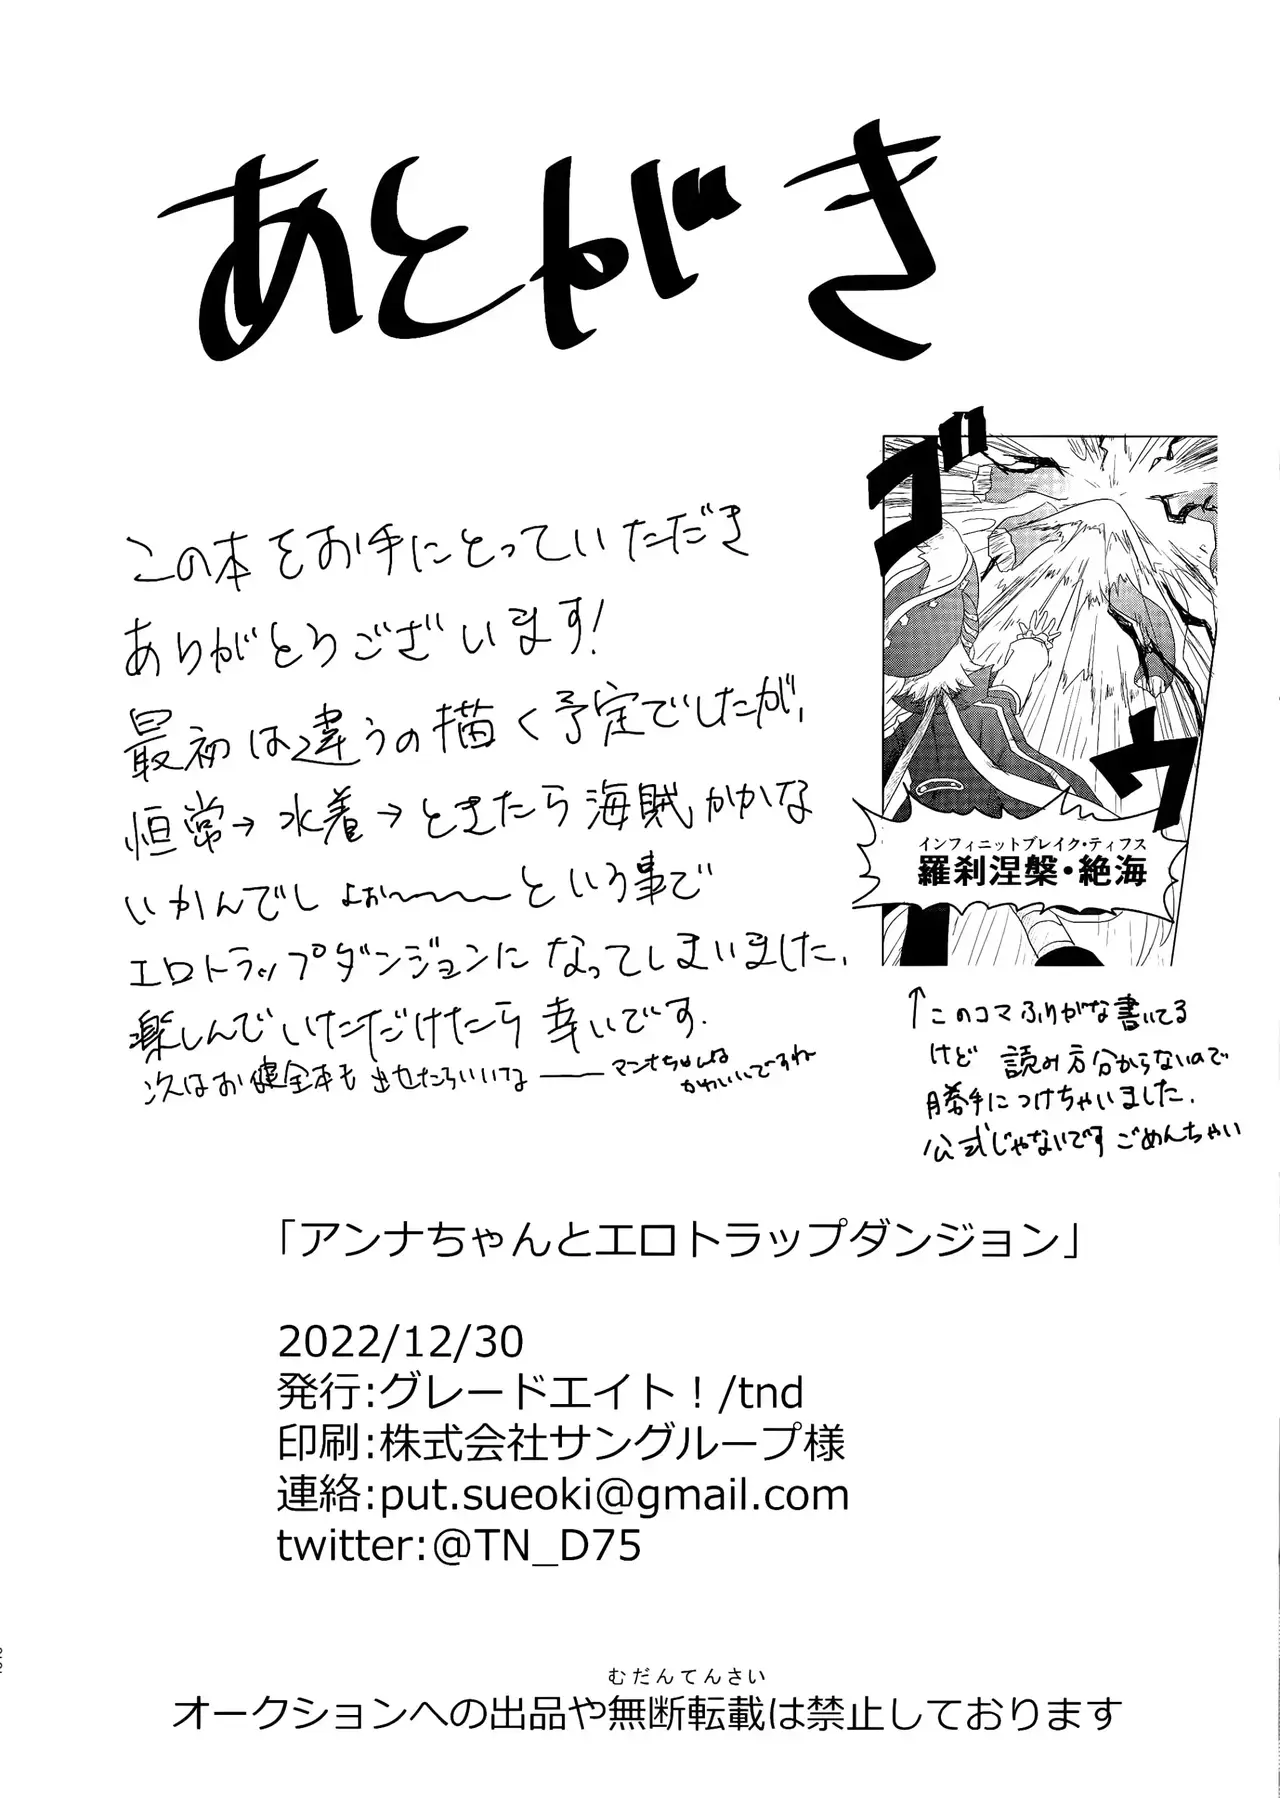 あとがき
この本をお手にとっていただき
ありがとうございます!
最初は違うの描く予定でしたが、
恒常→水着→ときたら海賊かかな
いかんでしょぉ〜〜〜という事で
エロトラップダンジョンになってしまいました.
楽しんでいただけたら幸いです.
次はお健全本も出せたらいいな――
マンナちゃんは
かわいいですね
ブ
ウ
インフィニットブレイク・ティフス
羅刹涅槃・絶海
↑このコマふりがな書いてる
けど 読み方分からないので
勝手につけちゃいました.
公式じゃないです ごめんちゃい
「アンナちゃんとエロトラップダンジョン」
2022/12/30
発行:グレードエイト!/tnd
印刷:株式会社サングループ様
連絡:put.sueoki@gmail.com
twitter:@TN_D75
むだんてんさい
オークションへの出品や無断転載は禁止しております